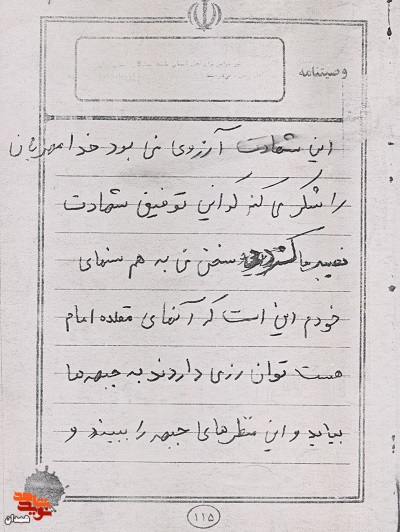 وصیتنامه
این شهادت آرزوی من بود خدا مهربان
را شکر می کنم که این توفیق شهادت
نصیب ما گردید سخن من به هم سنهای
خودم این است که آنهای مقلده امام
هست توان رزی داردند به جبهه ها
بیایید و این منظرهای جبهه را ببیند و
۱۱۵
نوید شاهد